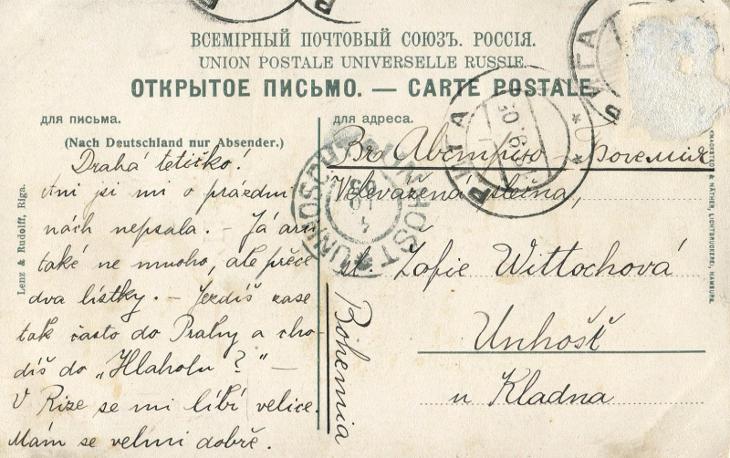 ВСЕМІРНЫЙ ПОЧТОВЫЙ СОЮЗЪ. РОССІЯ.
UNION POSTALE UNIVERSELLE RUSSIE.
ОТКРЫТОЕ ПИСЬМО. — CARTE POSTALE
для письма.
(Nach Deutschland nur Absender.)
Drahá tetičko!
Ani jsi mi o prázdni
nách nepsala. — Já ani
také ne mnoho, ale přece
dva lístky. — Jezdíš zase
tak často do Prahy a cho-
díš do „Hlaholu?" —
V Rize se mi líbí velice.
Mám se velmi dobře.
для адреса.
Въ Австрію — Богемія
Velevážená slečna,
sl. Zofie Wittochová
Unhošť
u Kladna
Bohemia
Lenz & Rudolff, Riga.
KNACKSTEDT & NÄTHER, LICHTDRUCKEREI, HAMBURG.
РИГА
РИГА
UNHOŠŤ